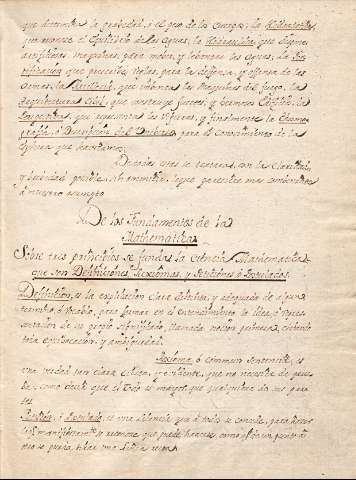 que determina la gravedad, ô el peso de los Cuerpos, la Hidrostatica,
que avanza el Equilibrio de las Aguas, la Hidraulica, que dispone
artificiosas maquinas, para mover, y lebantar las aguas, La For-
tificacion que prescribe reglas, para la defensa, y offensa de las
armas, la Artilleria, que les maquinas del fuego, la
Arquitectura Civil, que construye fuertes, y Edificios, la
que las figuras, y finalmente la
grafia, ô Descripcion del Vniverso, para el Conocimiento de la
que havitamos.
De todas estas se tratara, con la Claridad,
y brevedad posible, sin omitir, lo que pareciere mas conducente
â nuestro asumpto
De los Fundamentos de la
Mathematica
Sobre tres principios se funda la ciencia Mathematica
que son Definiciones, Axiomas, y Peticiones ô Postulados.
Definicion, es la explicacion clara distinta, y adequada de algun
termino, ô vocablo, para formar en el entendimiento la idea, ô repre-
sentacion de su propio significado, llamada nocion primera, evitando
toda equibocacion, y ambiguedad.
Axioma ô commun Sentencia, es
una verdad tan clara, cierta, y evidente, que no necesita de prue-
ba, como decir que el todo es mayor, que qualquiera de sus par-
tes.
Peticion, ô Postulado, es una Sentencia que â todos se concede, para
manifiestamte. y reconoce que puede hacerse, como q̃ de un punto â
otro se pueda tirar una Linea recta.